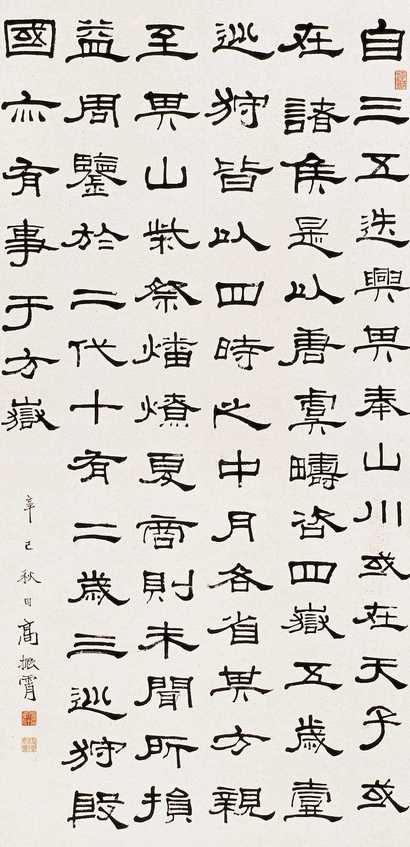 自三五迭興其奉山川或在天子或
在諸侯是以唐虞疇咨四嶽五歲壹
巡狩皆以四時之中月各省其方親
至其山柴祭燔燎夏商則未聞所損
益周鑒於二代十有二歲三巡狩殷
國亦有事于方嶽
辛巳秋日高振霄